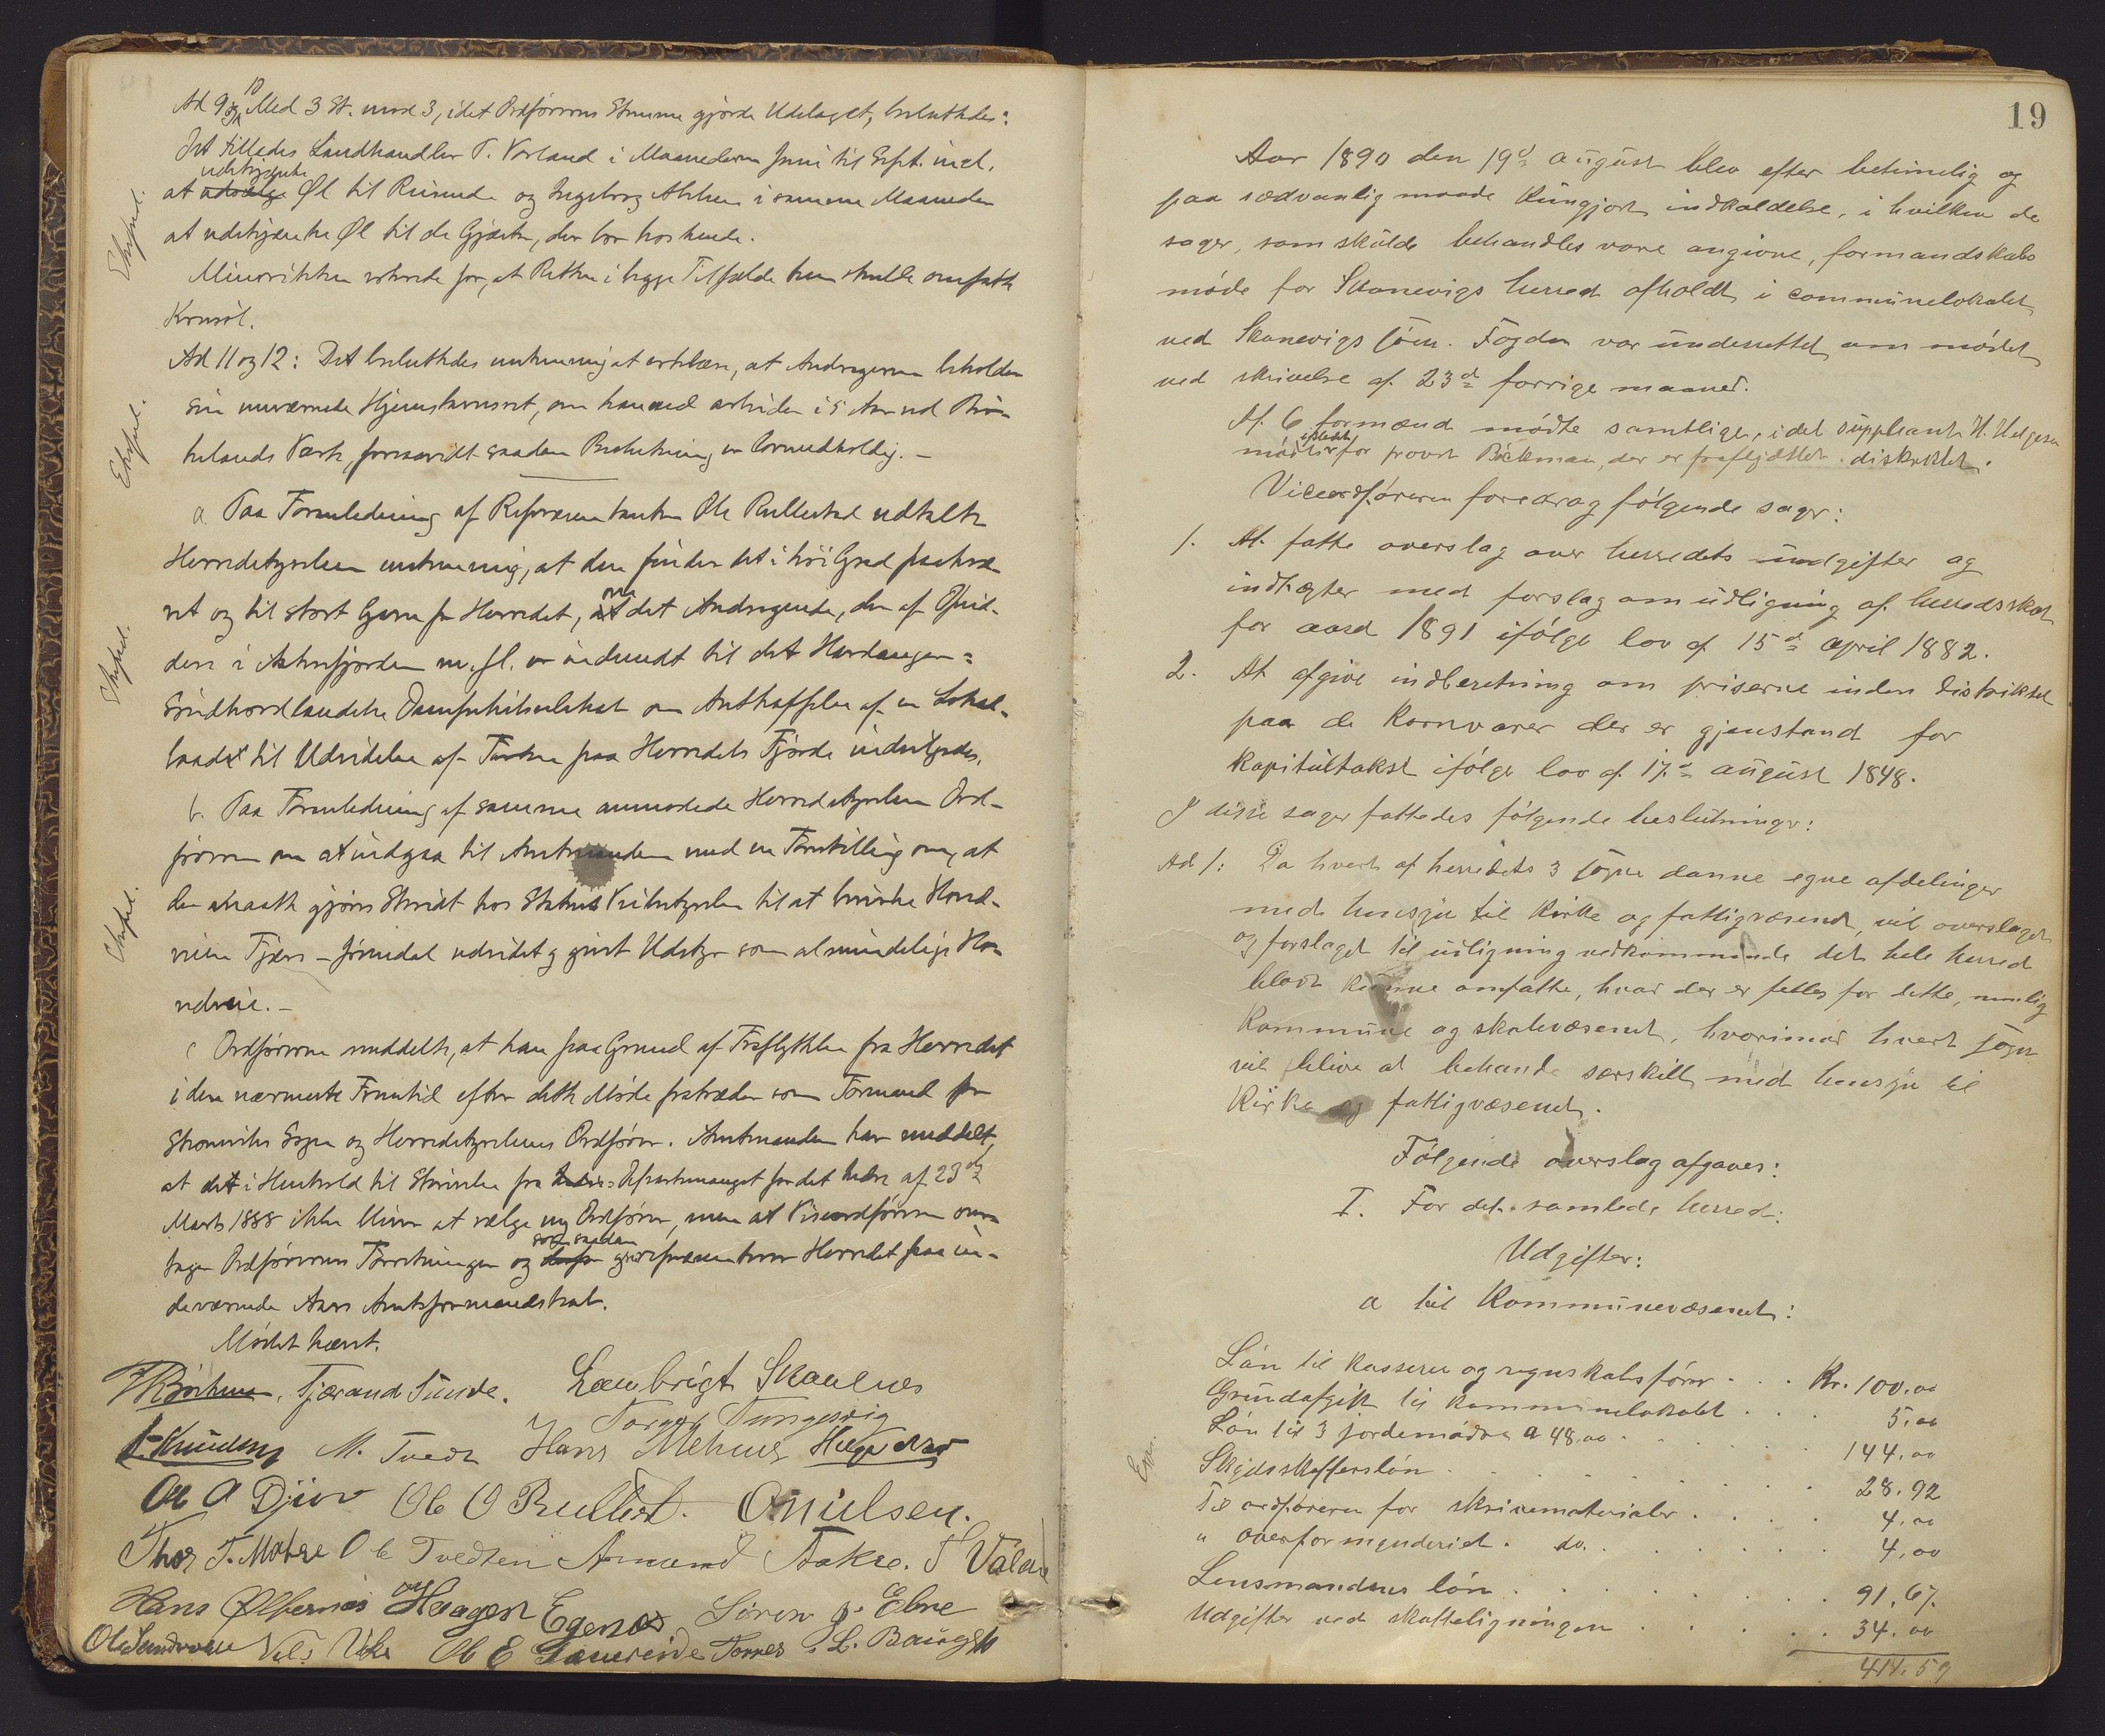 Ad 9 og 10 Med 3 St. mod 3, idet Ordførerens Stemme gjorde Udslaget, besluttedes:
Det tilledes Landhandler T. Varland i Maanederne Juni til Sept. incl.
at udskjænke Øl til Reisende og Ingeborg i samme Maaneder
at udskjænke Øl til de Gjæster, der bor hos hende.
Minoriteten voterede for, at Retten i begge Tilfælde kun skulde omfatte
Ad 11 og 12: Det besluttedes enstemmig at erklære, at Andragerne beholder
sin nuværende Hjemstavnsret, om han ved arbeider i 5 Aar ved
Værk, forsaavidt saadan Beslutning er lovmedholdig. –
Exped.
Exped.
a Paa Foranledning af Repræsentanten Ole Rullestad udtalte
Herredsstyrelsen enstemmig, at den finder det i høi Grad paakræ-
vet og til stort Gavn for Herredet, om det Andragende, der af Opsid-
dere i Aakrefjorden m. fl. er indsendt til det Hardanger=
Søndhordlandske Dampskibsselskab om Anskaffelse af en Lokal-
baad til Udvidelse af Turene paa Herredets Fjorde indvilgedes.
Exped.
b. Paa Foranledning af samme anmodede Herredsstyrelsen Ord-
føreren om at indgaa til Amtmanden med en Forestilling om, at
der maatte gjøres Skridt hos Statens Veibestyrelse til at bevirke Hoved-
veien Fjære – Jøsendal udvidet og givet Udstyr som almindelige Ho-
vedveie. –
Exped.
c Ordføreren meddelte, at han paa Grund af Fraflyttelse fra Herredet
i den nærmeste Fremtid efter dette Møde fratræder som Formand for
Skoneviks Sogn og Herredsstyrelsens Ordfører. Amtmanden har meddelt,
at det i Henhold til Skrivelse fra Departementet for det Indre af 23de
Marts 1888 ikke bliver at vælge ny Ordfører, men at Viceordføreren over-
tager Ordførerens Forretninger og som saadan repræsenterer Herredet paa in-
deværende Aars Amtsformandskab.
Mødet hævet.
Bøckman. Tjærand Sunde. Lambrigt Skaalnes
Torger Tungesvig
Knudsen M. Tvedt Hans Mehus Helge
Ole A Djuv Ole O Rullest. O Nielsen.
Thor T. Molvre Ole Tvedten Amund Aakre. T Valand
Hans Ølfernæs Haagen Egenæs Søren J. Ebne
Ole Sundvore Nels Vike Ole E Tornes. L. Baugst
19
Aar 1890 den 19de august blev efter betimelig og
paa sædvanlig maade kungjort indkaldelse, i hvilken de
sager, som skulde behandles vare angivne, formandskabs
møde for Skonevigs herred afholdt i communelokalet
ved Skonevigs søen. Fogden var underrettet om mødet
ved skrivelse af 23de forrige maaned.
Af 6 formænd mødte samtlige, idet suppleant H. Helgesen
mødte istedetfor provst Bøckman, der er fraflyttet distriktet.
Viceordføreren foredrog følgende sager:
1. At fatte overslag over herredets udgifter og
indtægter med forslag om udligning af herredsskat
for aaret 1891 ifølge lov af 15de april 1882.
2. At afgive indberetning om priserne inden distriktet
paa de kornvarer der er gjenstand for
kapitultakst ifølge lov af 17de august 1848.
I disse sager fattedes følgende beslutninger:
Ad 1: Da hvert af herredets 3 sogne danne egne afdelinger
med hensyn til kirke og fattigvæsenet, vil overslaget
og forslaget til udligning vedkommende det hele herred
blodt kunne omfatte, hvad der er felles for dette, nemlig
Kommune og skolevæsenet, hvorimod hvert sogn
vil blive at behandle særskilt med hensyn til
Kirke og fattigvæsenet.
Følgende overslag afgaves:
I. For det samlede herred:
Udgifter:
a til Kommunevæsenet:
Løn til kasserer og regnskabsfører . . . Kr. 100,00
Grundafgift til kommunelokalet . . . 5,00
Løn til 3 jordemødre a 48,00 . . . . . 144,00
Skydsskafferløn . . . . . . . 28,92
Til ordføreren for skrivematerialer . . . . 4,00
" overformynderiet . do. . . . . . . 4,00
Lensmandens løn . . . . . . . 91,67.
Udgifter ved skatteligningen . . . . . 34,00
411.59